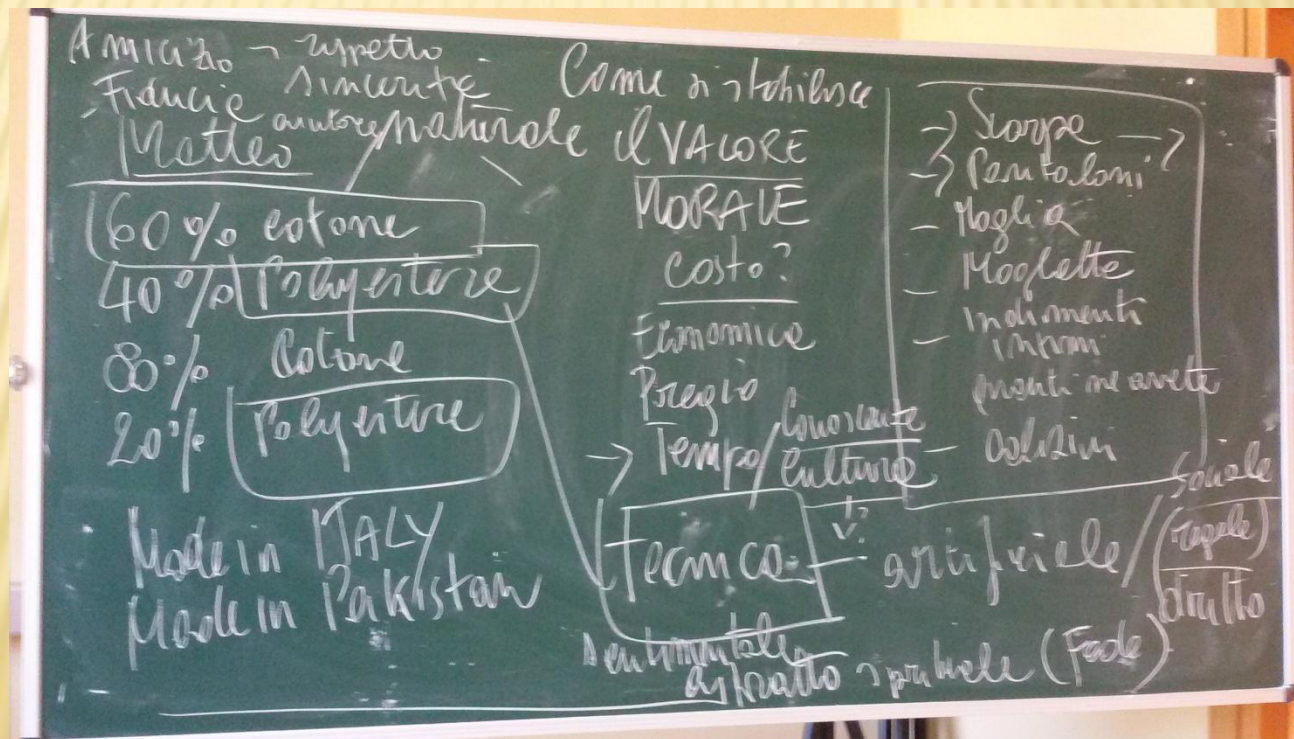 Amicizia → rispetto
Fiducia sincerità
naturale
Matteo
60% cotone
40% Polyestere
80% Cotone
20% Polyestere
Made in ITALY
Made in Pakistan
Come si stabilisce
il VALORE
MORALE
costo?
Economico
Pregio
→ Tempo / Conoscenze
Cultura
Tecnica — artificiale / (regole)
sociale
diritto
sentimentale
astratto spirituale (Fede)
→ Scarpe →
→ Pantaloni
- Maglia
- Magliette
- Indumenti
intimi
quanti ne avete
- calzini